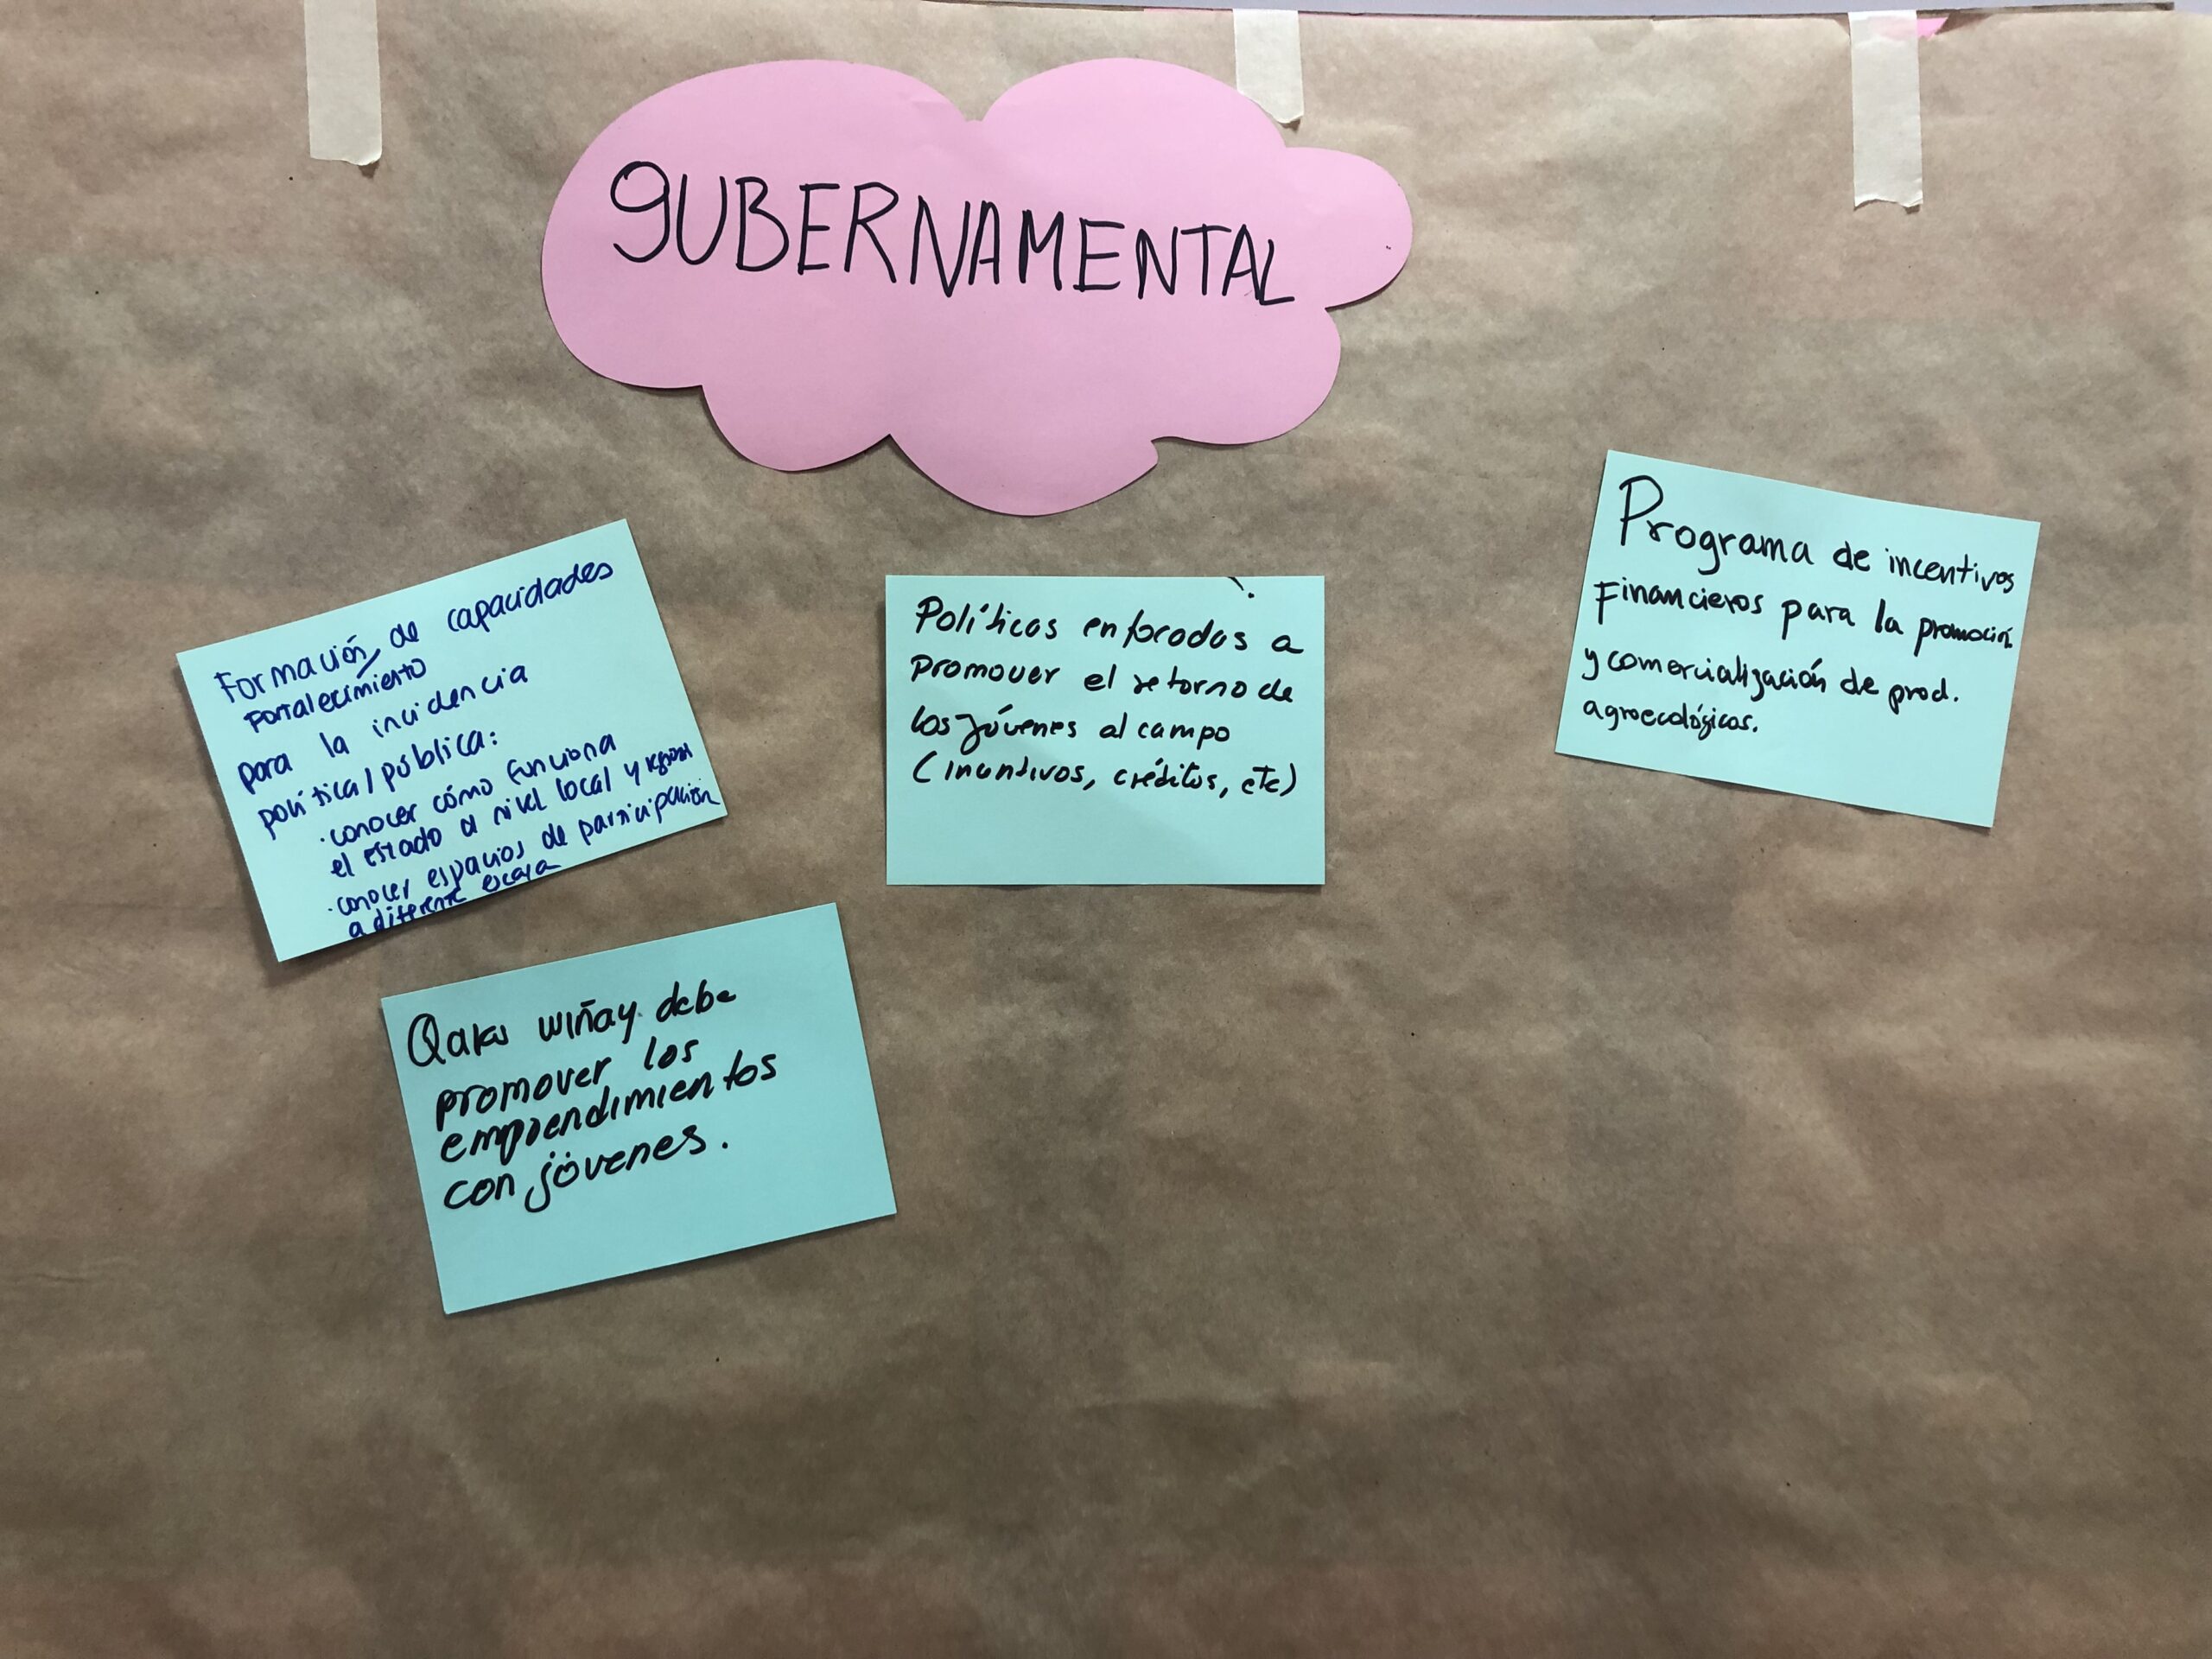 GUBERNAMENTAL
Formación, de capacidades
Fortalecimiento
para la incidencia
política/pública:
· conocer cómo funciona
el estado a nivel local y regional
· conocer espacios de participación
a diferente escala
Políticas enfocadas a
promover el retorno de
los jóvenes al campo
(incentivos, créditos, etc)
Programa de incentivos
Financieros para la promoción
y comercialización de prod.
agroecológicos.
wiñay debe
promover los
emprendimientos
con jóvenes.